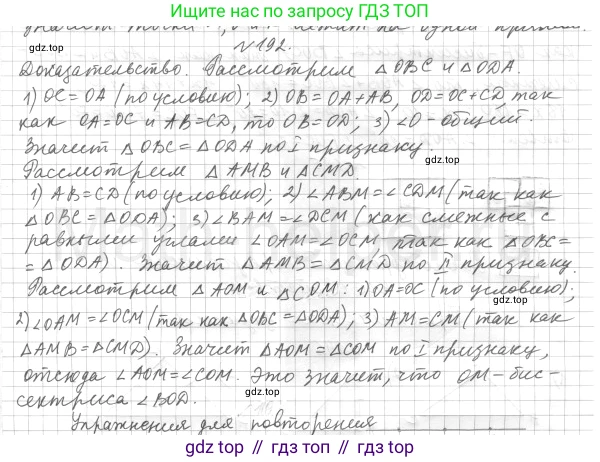 Ищите нас по запросу ГДЗ ТОП
на одной прямой.
gdz.top
№192.
gdz.top
Доказательство. Рассмотрим △OBC и △ODA.
1) OC=OA (по условию); 2) OB=OA+AB, OD=OC+CD, так
как OA=OC и AB=CD, то OB=OD; 3) ∠O-общий.
Значит △OBC=△ODA по I признаку.
gdz.top
Рассмотрим △AMB и △CMD
1) AB=CD (по условию); 2) ∠ABM=∠CDM (так как
△OBC=△ODA); 3) ∠BAM=∠DCM (как смежные с
равными углами ∠OAM=∠OCM, так как △OBC=
gdz.top
=△ODA). Значит △AMB=△CMD по II признаку.
Рассмотрим △AOM и △COM: 1) OA=OC (по условию);
gdz.top
2) ∠OAM=∠OCM (так как △OBC=△ODA); 3) AM=CM (так как
△AMB=△CMD). Значит △AOM=△COM по I признаку,
gdz.top
отсюда ∠AOM=∠COM. Это значит, что OM-бис-
сектриса ∠BOD.
Упражнения для повторения
gdz.top
gdz.top // гдз топ // gdz.top // гдз топ // gdz.top